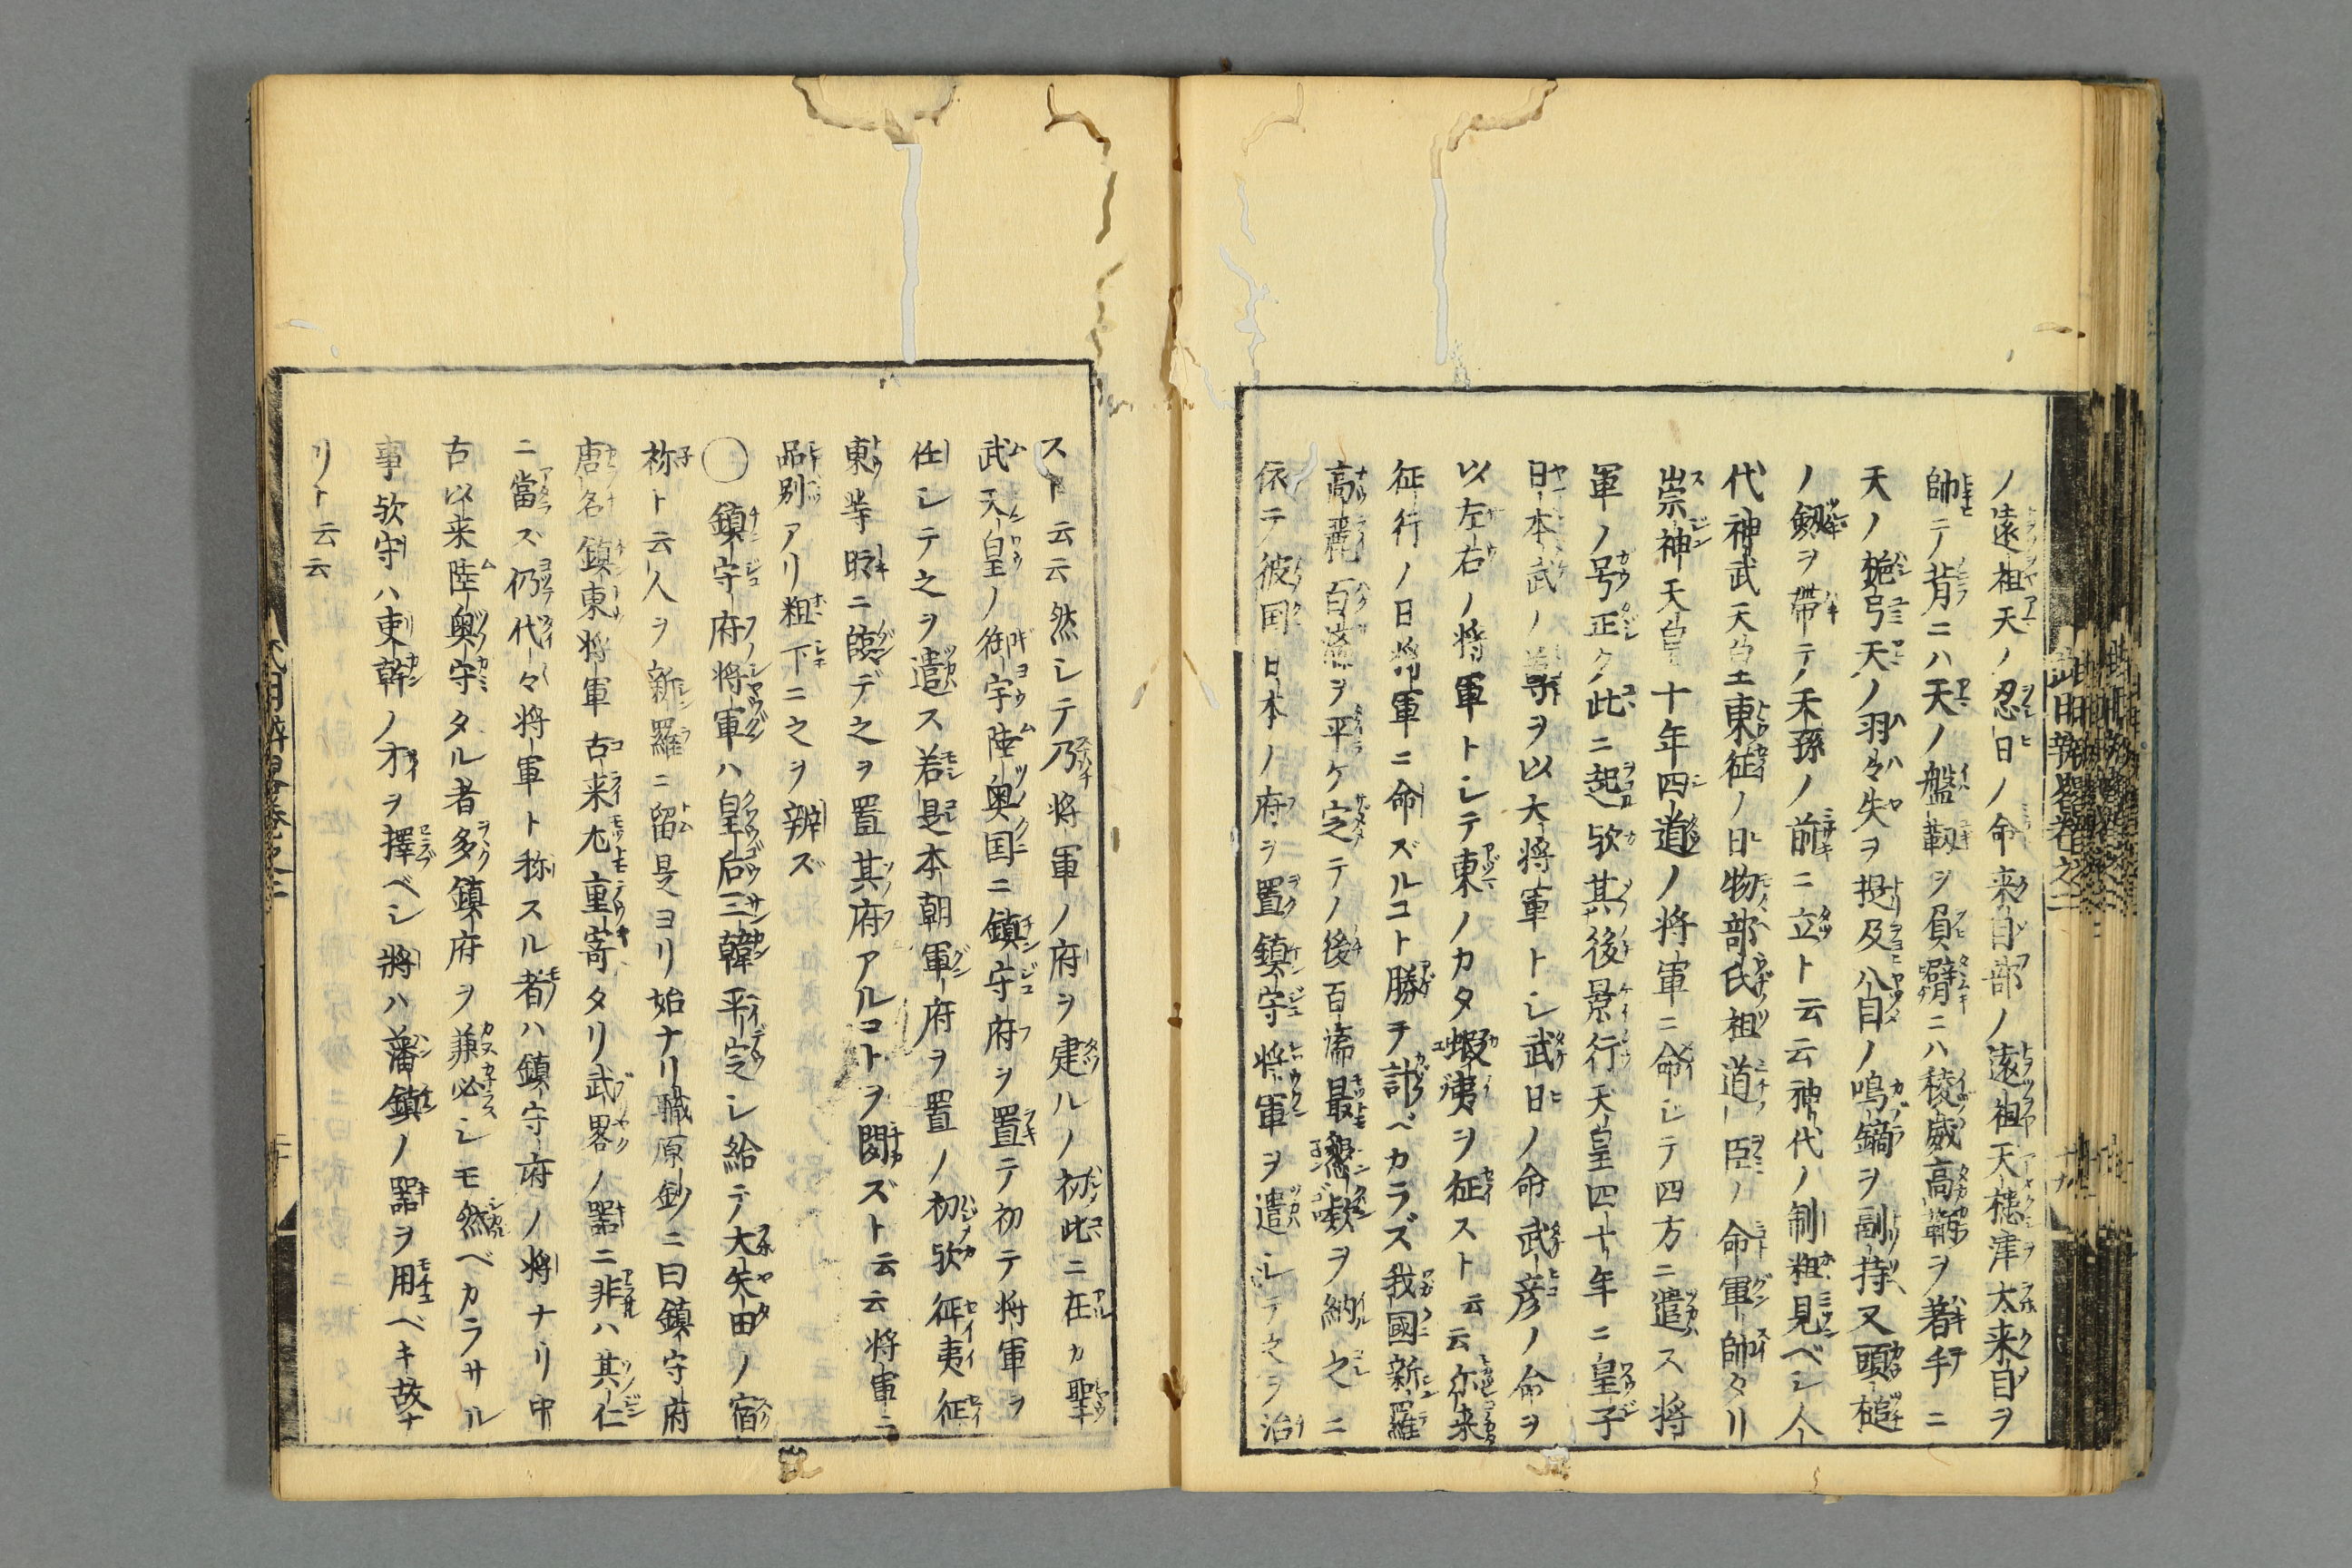 ノ遠祖天ノ忍日ノ命来自部ノ遠祖天穂津大来自ヲ
帥テ背ニハ天ノ盤靫ヲ負臂ニハ稜威高鞆ヲ著手ニ
天ノ梔弓天ノ羽々矢ヲ提及八目ノ鳴鏑ヲ副持又頭槌
ノ劔ヲ帶テ天孫ノ前ニ立ト云云神代ノ制粗見ベシ人
代神武天皇東征ノ日物部氏祖道臣ノ命軍帥タリ
崇神天皇十年四道ノ将軍ニ命シテ四方ニ遣ス将
軍ノ号正ク此ニ起欤其後景行天皇四十年ニ皇子
日本武ノ尊ヲ以大将軍トシ武日ノ命武彦ノ命ヲ
以左右ノ将軍トシテ東ノカタ蝦夷ヲ征スト云云尒来
征行ノ日将軍ニ命ズルコト勝テ計ベカラズ我國新羅
高麗百済ヲ平ケ定テノ後百済最懇欵ヲ納之ニ
依テ彼国日本ノ府ヲ置鎮守将軍ヲ遣シテ之ヲ治
スト云云然シテ乃将軍ノ府ヲ建ルノ初此ニ在カ聖
武天皇ノ御宇陸奥国ニ鎮守府ヲ置テ初テ将軍ヲ
任シテ之ヲ遣ス若是本朝軍府ヲ置ノ初欤征夷征
東等時ニ臨デ之ヲ置其府アルコトヲ聞ズト云云将軍ニ
品別アリ粗下ニ之ヲ辨ズ
〇鎮守府将軍ハ皇后三韓平定シ給テ大矢田ノ宿
祢ト云人ヲ新羅ニ留是ヨリ始ナリ職原鈔ニ曰鎮守府
唐名鎮東将軍古来尤重寄タリ武畧ノ器ニ非ハ其仁
ニ當ズ仍代々将軍ト称スル者ハ鎮守府ノ将ナリ中
古以来陸奥守タル者多鎮府ヲ兼必シモ然ベカラサル
事欤守ハ吏幹ノ才ヲ擇ベシ将ハ藩鎮ノ器ヲ用ベキ故ナ
リト云云